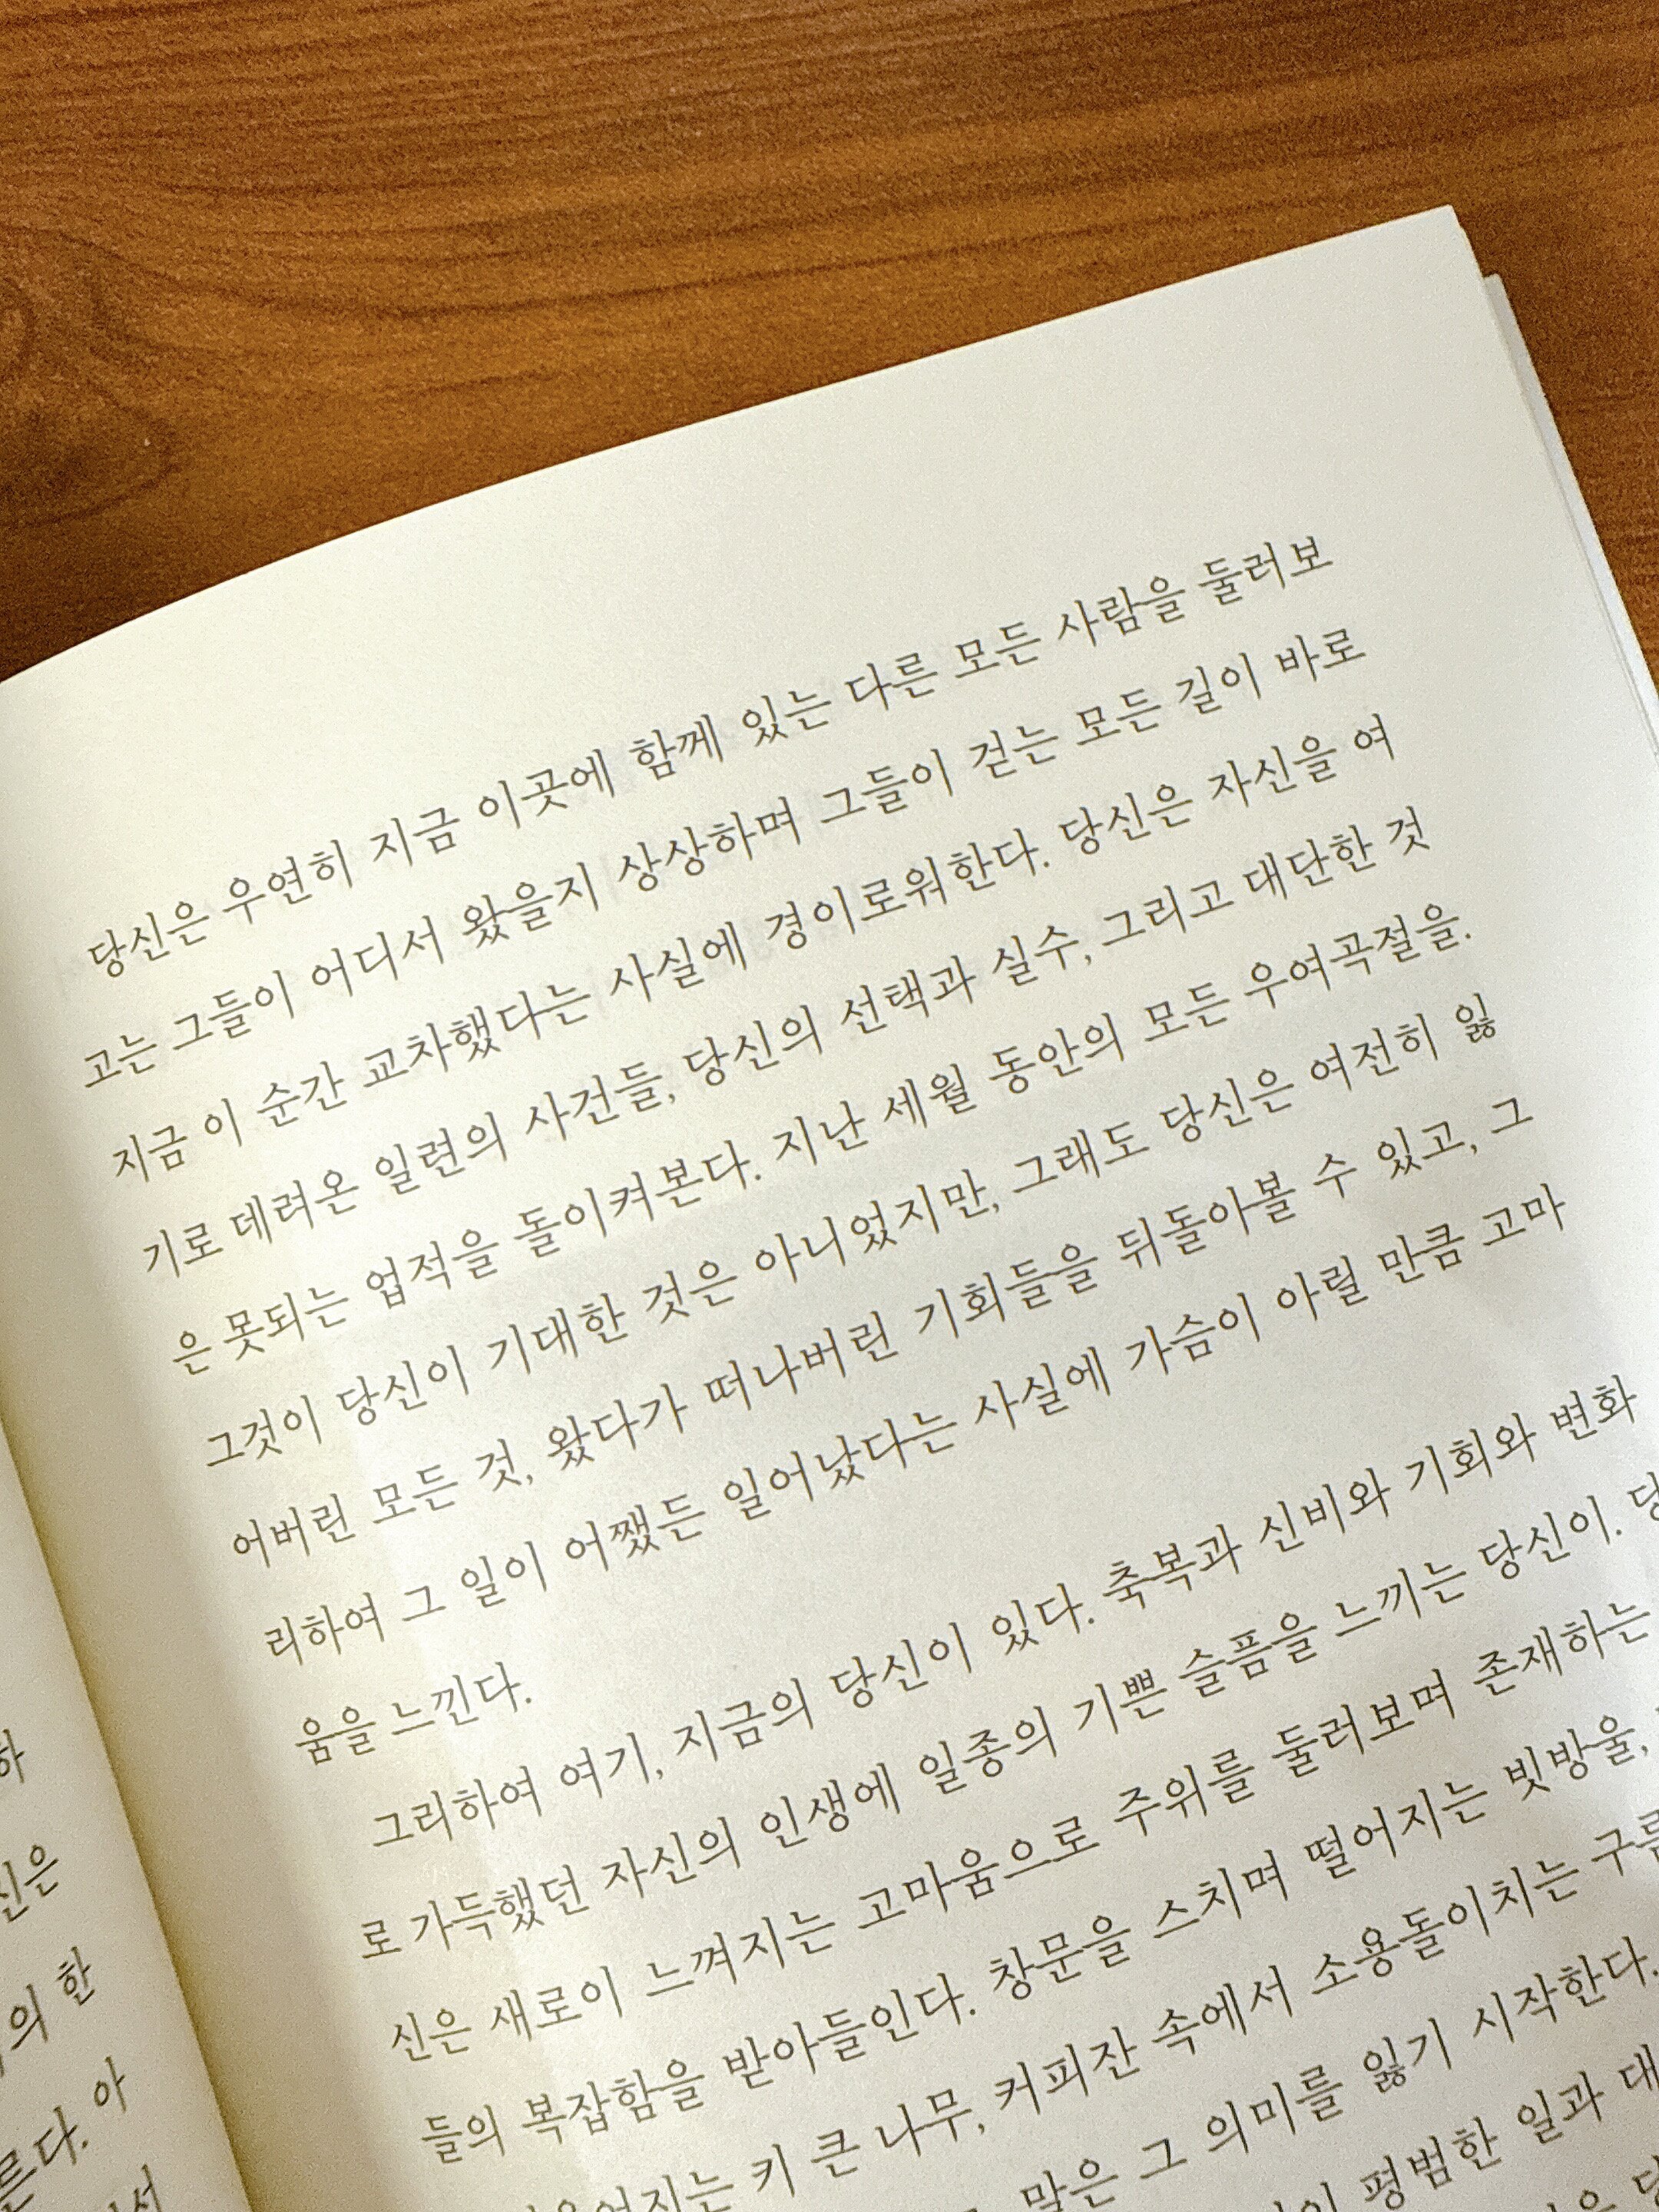 당신은 우연히 지금 이곳에 함께 있는 다른 모든 사람을 둘러보
고는 그들이 어디서 왔을지 상상하며 그들이 걷는 모든 길이 바로
지금 이 순간 교차했다는 사실에 경이로워한다. 당신은 자신을 여
기로 데려온 일련의 사건들, 당신의 선택과 실수, 그리고 대단한 것
은 못되는 업적을 돌이켜본다. 지난 세월 동안의 모든 우여곡절을.
그것이 당신이 기대한 것은 아니었지만, 그래도 당신은 여전히 잃
어버린 모든 것, 왔다가 떠나버린 기회들을 뒤돌아볼 수 있고, 그
리하여 그 일이 어쨌든 일어났다는 사실에 가슴이 아릴 만큼 고마
움을 느낀다.
그리하여 여기, 지금의 당신이 있다. 축복과 신비와 기회와 변화
로 가득했던 자신의 인생에 일종의 기쁜 슬픔을 느끼는 당신이.
신은 새로이 느껴지는 고마움으로 주위를 둘러보며 존재하는
들의 복잡함을 받아들인다. 창문을 스치며 떨어지는 빗방울,
키 큰 나무, 커피잔 속에서 소용돌이치는 구름
말은 그 의미를 잃기 시작한다.
평범한 일과 대
하
신은
의 한
아